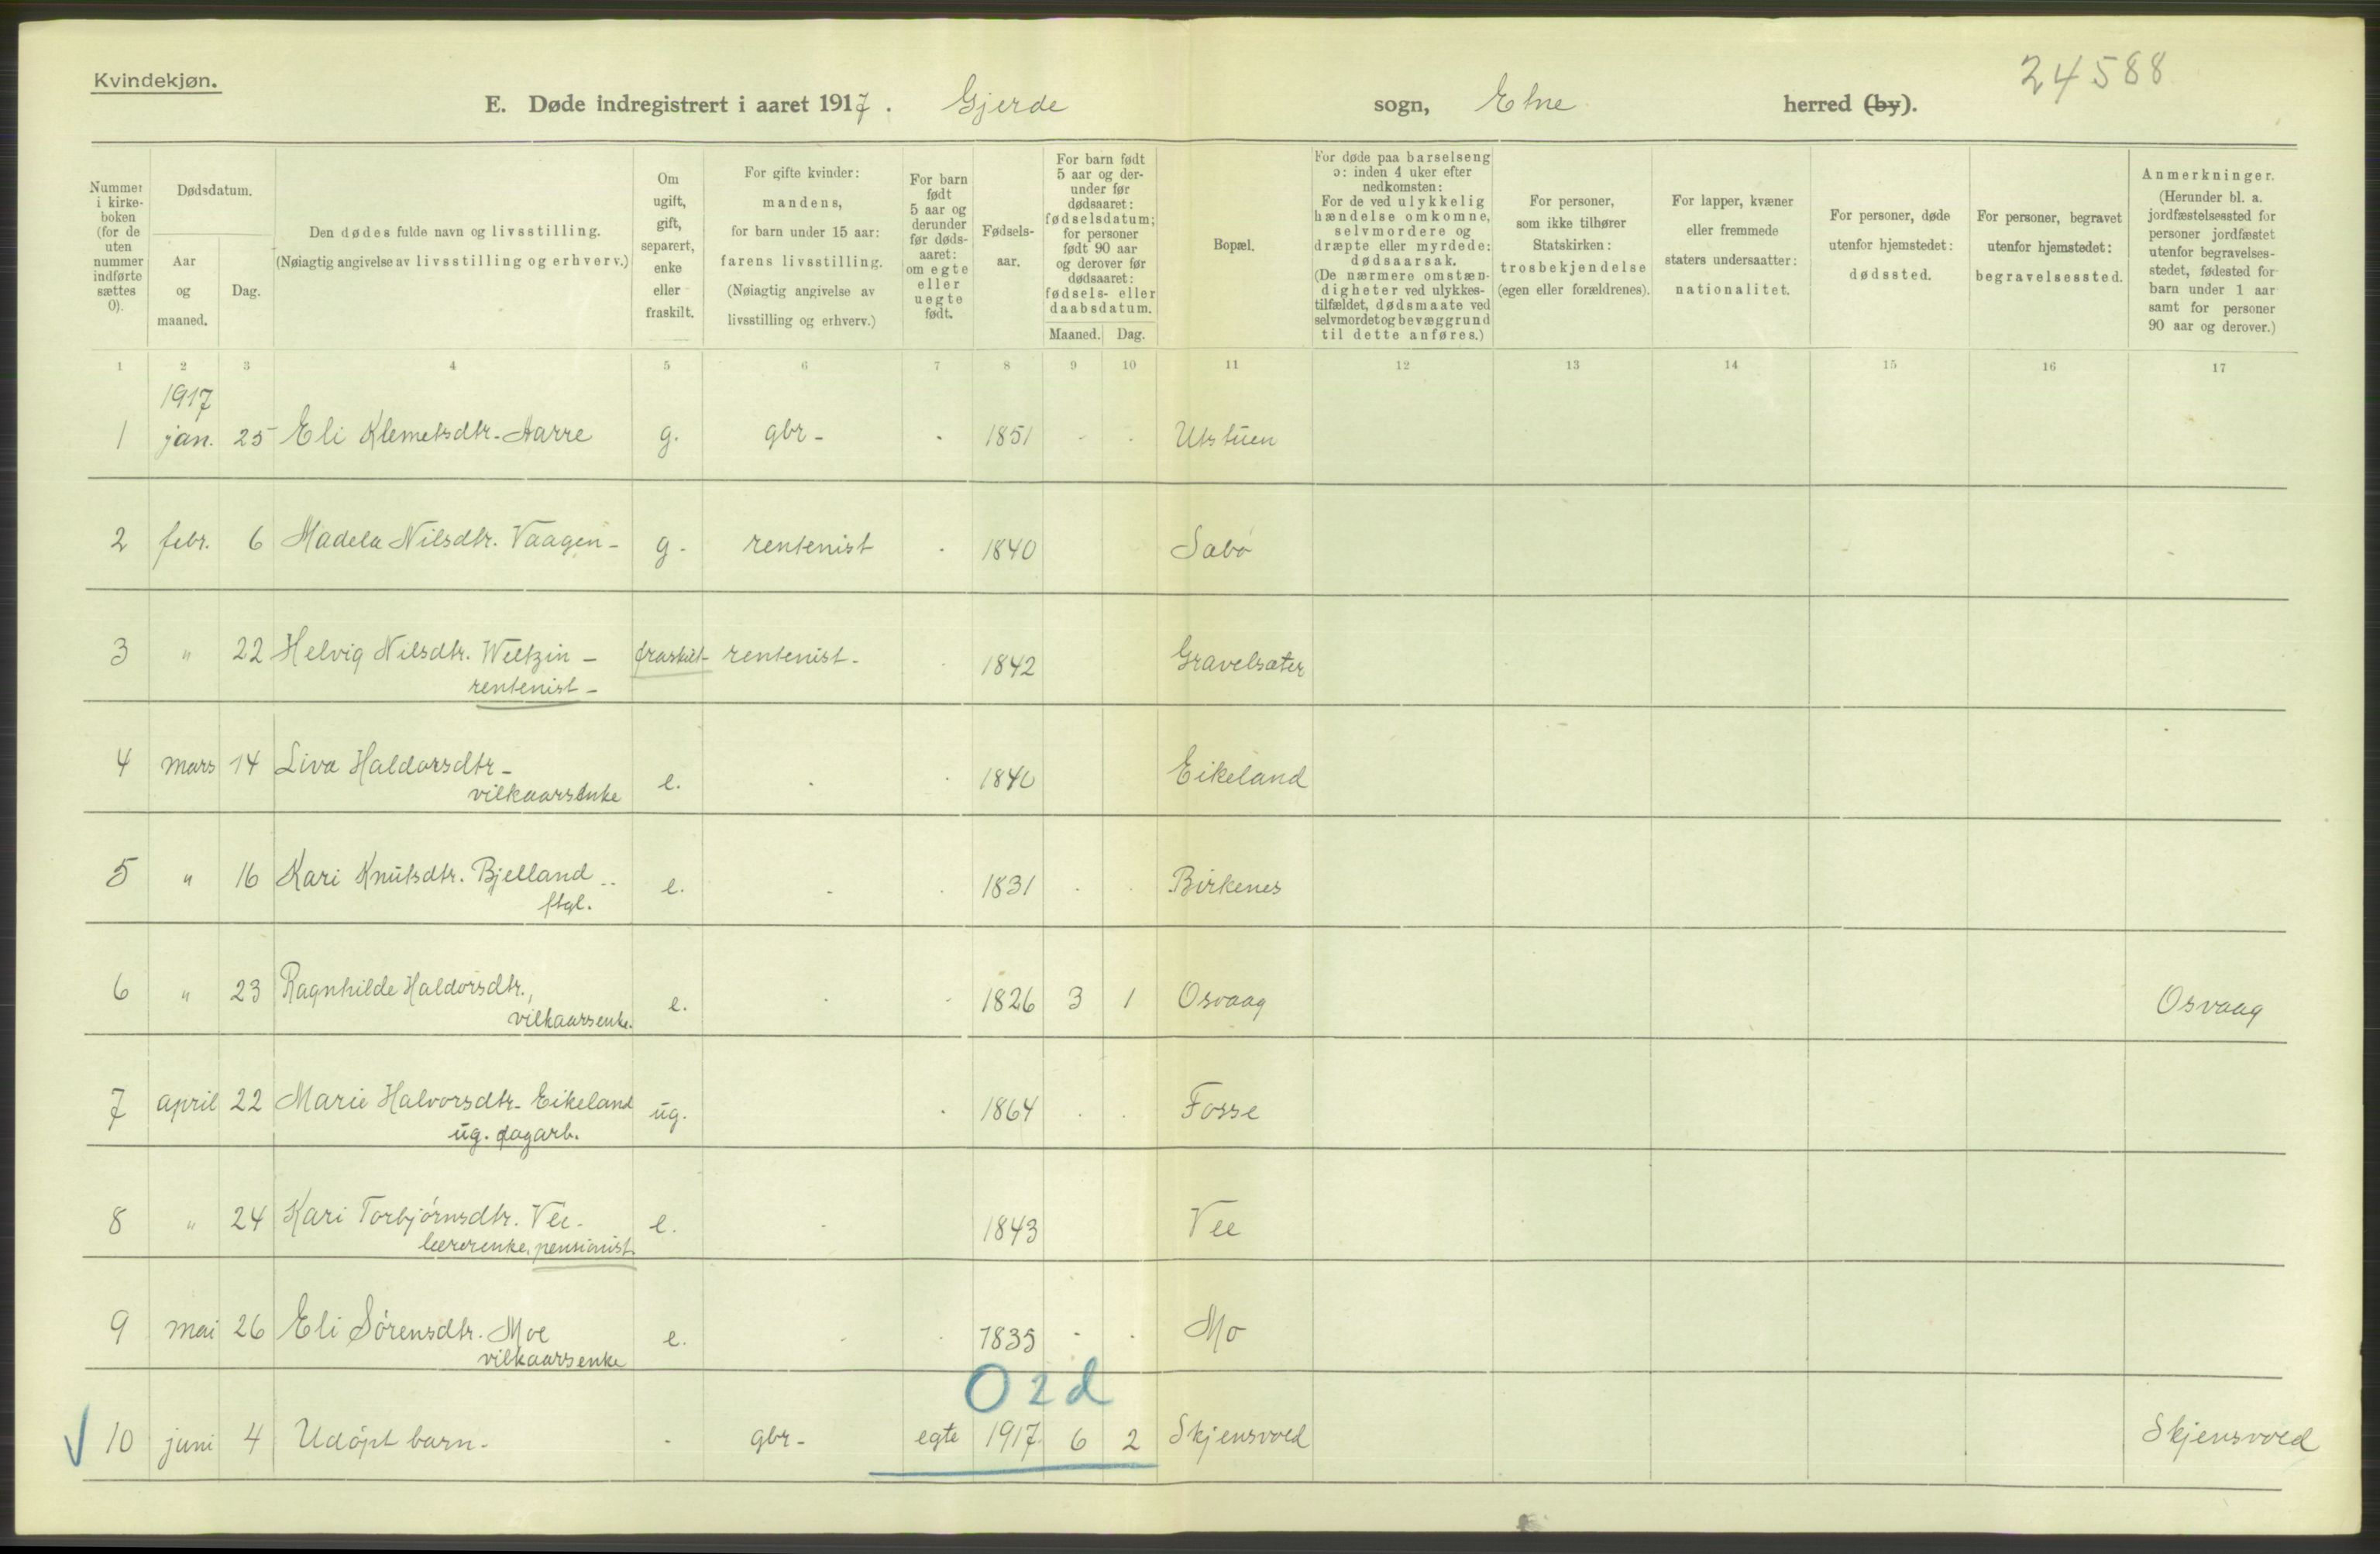 Kvindekjøn.
24588
E. Døde indregistrert i aaret 1917. Gjerde sogn, Etne herred (by).
Nummer i kirkeboken (for de uten nummer indførte sættes 0).
Dødsdatum.
Aar og maaned.
Dag.
Den dødes fulde navn og livsstilling.
(Nøiagtig angivelse av livsstilling og erhverv.)
Om ugift, gift, separert, enke eller fraskilt.
For gifte kvinder: mandens, for barn under 15 aar: farens livsstilling.
(Nøiagtig angivelse av livsstilling og erhverv.)
For barn født 5 aar og derunder før dødsaaret: om egte eller uegte født.
Fødselsaar.
For barn født 5 aar og derunder før dødsaaret: fødselsdatum; for personer født 90 aar og derover før dødsaaret: fødsels- eller daabsdatum.
Maaned. Dag.
Bopæl.
For døde paa barselseng ɔ: inden 4 uker efter nedkomsten: For de ved ulykkelig hændelse omkomne, selvmordere og dræpte eller myrdede: dødsaarsak.
(De nærmere omstændigheter ved ulykkestilfældet, dødsmaate ved selvmordet og bevæggrund til dette anføres.)
For personer, som ikke tilhører Statskirken: trosbekjendelse (egen eller forældrenes).
For lapper, kvæner eller fremmede staters undersaatter: nationalitet.
For personer, døde utenfor hjemstedet: dødssted.
For personer, begravet utenfor hjemstedet: begravelsessted.
Anmerkninger.
(Herunder bl. a. jordfæstelsessted for personer jordfæstet utenfor begravelsesstedet, fødested for barn under 1 aar samt for personer 90 aar og derover.)
1 2 3 4 5 6 7 8 9 10 11 12 13 14 15 16 17
1917
1 jan. 25 Eli Klemetsdtr. Aarre g. gbr - 1851 Utstuen
2 febr. 6 Madela Nilsdtr. Vaagen - g. rentenist 1840 Sabø
3 " 22 Helvig Nilsdtr. Weltzin - fraskilt - rentenist - 1842 Gravelsæter
rentenist -
4 mars 14 Liva Haldorsdtr - e. 1840 Eikeland
vilkaarsenke
5 " 16 Kari Knutsdtr. Bjelland e. 1831 Birkenes
ftgl.
6 " 23 Ragnhilde Haldorsdtr., e. 1826 3 1 Osvaag Osvaag
vilkaarsenke.
7 april 22 Marie Halvorsdtr. Eikeland ug. 1864 Fosse
ug. dagarb.
8 " 24 Kari Torbjørnsdtr. Vee. e. 1843 Vee
lærerenke, pensionist.
9 mai 26 Eli Sørensdtr. Moe e. 1835 Mo
vilkaarsenke
0 2 d
10 juni 4 Udøpt barn - gbr - egte 1917 6 2 Skjensvold Skjensvold